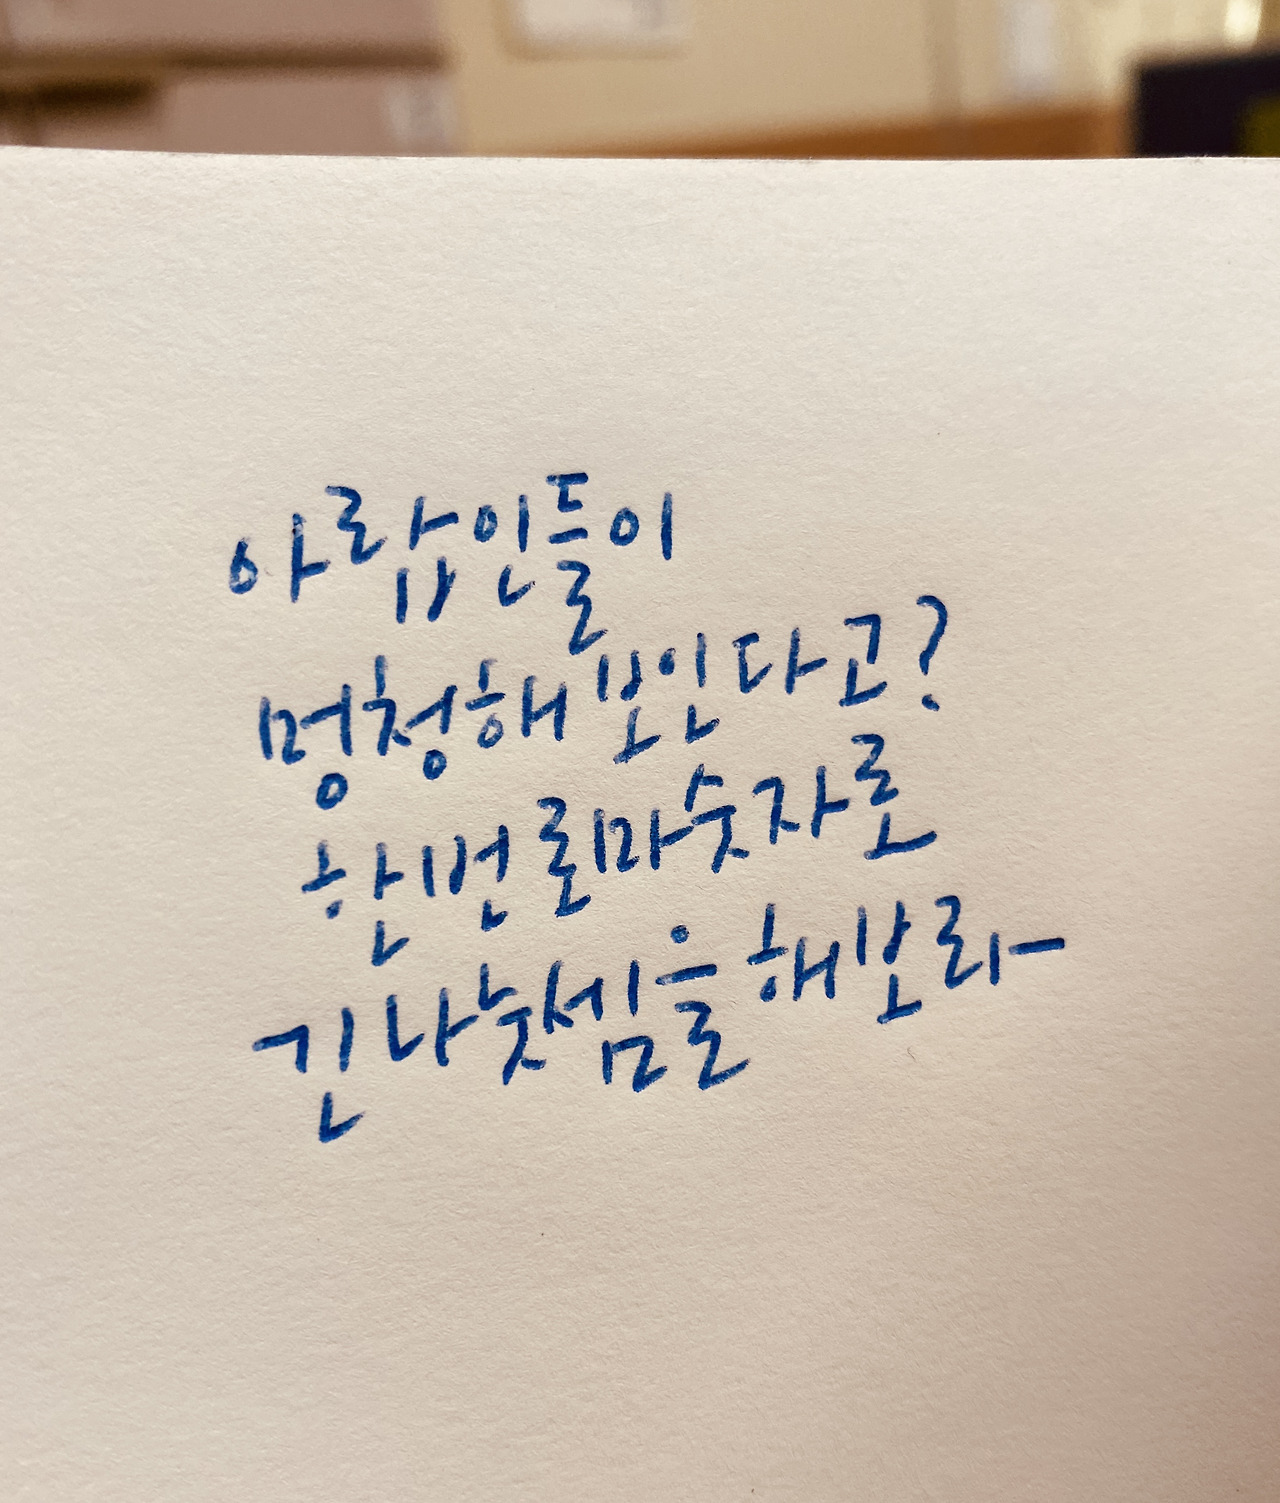 아랍인들이
멍청해 보인다고?
한번 로마숫자로
긴 나눗셈을 해보라